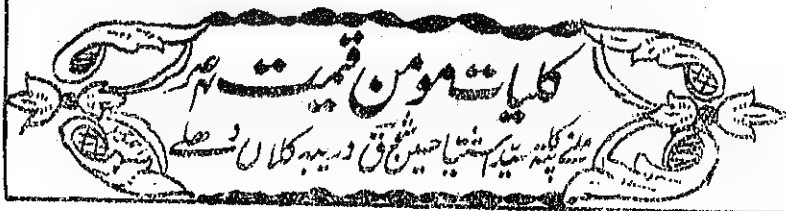 کلیات مومن قیمت عہ
ملنے کا پتہ سید اشتیاق حسین شوق دریبہ کلاں دھلے